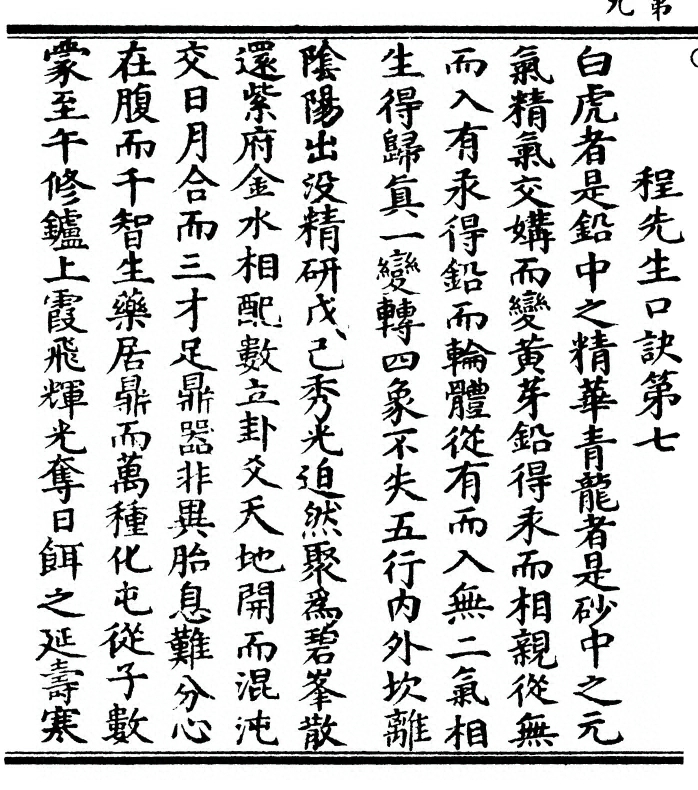 第九
程先生口訣第七
白虎者是鉛中之精華青龍者是砂中之元
氣精氣交媾而變黃芽鉛得汞而相親從無
而入有汞得鉛而輪體從有而入無二氣相
生得歸眞一變轉四象不失五行內外坎離
陰陽出没精研戊己秀光迫然聚爲碧峯散
還紫府金水相配數立卦爻天地開而混沌
交日月合而三才足鼎器非異胎息難分心
在腹而千智生藥居鼎而萬種化屯從子數
蒙至午修鑪上霞飛輝光奪日餌之延壽寒